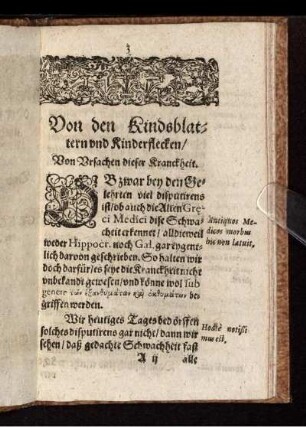 3
Von den Kindsblat⸗
tern vnd Kinderflecken/
Von Vrsachen dieser Kranckheit.
OBzwar bey den Ge⸗
lehrten viel disputirens
ist/ob auch die Alten Gre⸗
ci Medici dise Schwa⸗
cheit erkennet / alldieweil
weder Hippocr. noch Gal. gar eygent⸗
lich darvon geschrieben. So halten wir
doch darfür/es seye die Kranckheit nicht
vnbekandt gewesen/vnd könne wol sub
genere τῶν ἐξανθημάτων καὶ ἐκθυμάτων be⸗
griffen werden.
Antiquos Me⸗
dicos morbus
hic non latuit.
Wir heutiges Tages bedörffen
solches disputirens gar nicht/dann wir
sehen / daß gedachte Schwachheit fast
Hodiè notissi⸗
mus est.
A ij
alle